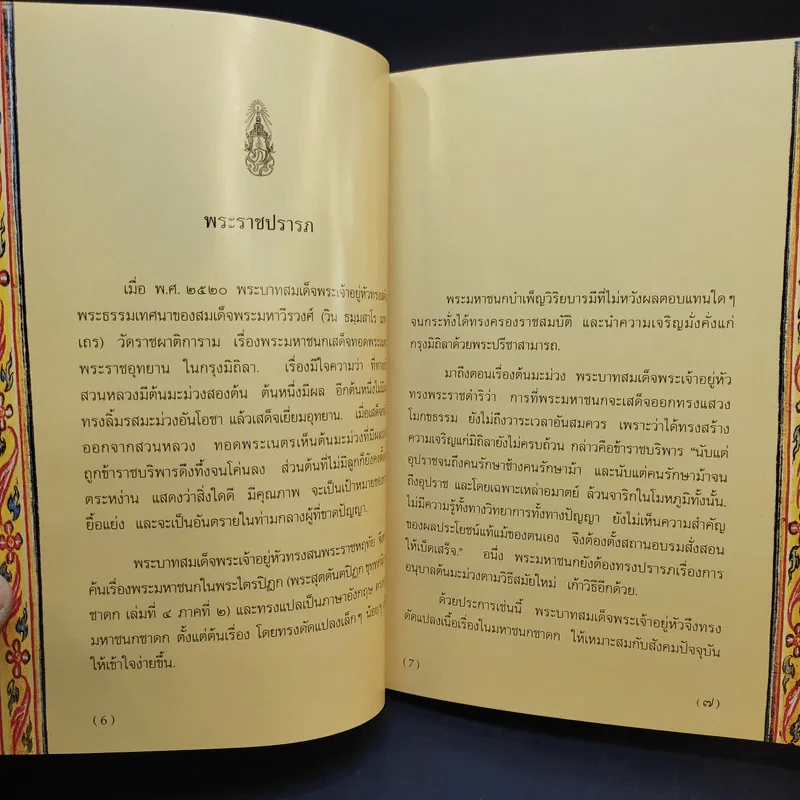 พระราชปรารภ
เมื่อ พ.ศ. ๒๕๒๐ พระบาทสมเด็จพระเจ้าอยู่หัวทรง
พระธรรมเทศนาของสมเด็จพระมหาวีรวงศ์ (วิน ธมฺมสาโร
เถร) วัดราชผาติการาม เรื่องพระมหาชนกเสด็จทอดพระเนตร
พระราชอุทยาน ในกรุงมิถิลา. เรื่องมีใจความว่า ที่ทาง
สวนหลวงมีต้นมะม่วงสองต้น ต้นหนึ่งมีผล อีกต้นหนึ่งไม่มี
ทรงลิ้มรสมะม่วงอันโอชา แล้วเสด็จเยี่ยมอุทยาน. เมื่อเสด็จ
ออกจากสวนหลวง ทอดพระเนตรเห็นต้นมะม่วงที่มีผล
ถูกข้าราชบริพารดึงทึ้งจนโค่นลง ส่วนต้นที่ไม่มีลูกก็ยังคง
ตระหง่าน แสดงว่าสิ่งใดดี มีคุณภาพ จะเป็นเป้าหมายของ
ยื้อแย่ง และจะเป็นอันตรายในท่ามกลางผู้ที่ขาดปัญญา.
พระบาทสมเด็จพระเจ้าอยู่หัวทรงสนพระราชหฤทัย จึง
ค้นเรื่องพระมหาชนกในพระไตรปิฎก (พระสุตตันตปิฎก
ชาดก เล่มที่ ๔ ภาคที่ ๒) และทรงแปลเป็นภาษาอังกฤษ
มหาชนกชาดก ตั้งแต่ต้นเรื่อง โดยทรงดัดแปลงเล็กๆ น้อยๆ
ให้เข้าใจง่ายขึ้น.
(6)
พระมหาชนกบำเพ็ญวิริยบารมีที่ไม่หวังผลตอบแทนใดๆ
จนกระทั่งได้ทรงครองราชสมบัติ และนำความเจริญมั่งคั่งแก่
กรุงมิถิลาด้วยพระปรีชาสามารถ.
มาถึงตอนเรื่องต้นมะม่วง พระบาทสมเด็จพระเจ้าอยู่หัว
ทรงพระราชดำริว่า การที่พระมหาชนกจะเสด็จออกทรงแสวง
โมกขธรรม ยังไม่ถึงวาระเวลาอันสมควร เพราะว่าได้ทรงสร้าง
ความเจริญแก่มิถิลายังไม่ครบถ้วน กล่าวคือข้าราชบริพาร “นับแต่
อุปราชจนถึงคนรักษาช้างคนรักษาม้า และนับแต่คนรักษาม้าจน
ถึงอุปราช และโดยเฉพาะเหล่าอมาตย์ ล้วนจาริกในโมหภูมิทั้งนั้น.
ไม่มีความรู้ทั้งทางวิทยาการทั้งทางปัญญา ยังไม่เห็นความสำคัญ
ของผลประโยชน์แท้แม้ของตนเอง จึงต้องตั้งสถานอบรมสั่งสอน
ให้เบ็ดเสร็จ.” อนึ่ง พระมหาชนกยังต้องทรงปรารภเรื่องการ
อนุบาลต้นมะม่วงตามวิธีสมัยใหม่ เก้าวิธีอีกด้วย.
ด้วยประการเช่นนี้ พระบาทสมเด็จพระเจ้าอยู่หัวจึงทรง
ดัดแปลงเนื้อเรื่องในมหาชนกชาดก ให้เหมาะสมกับสังคมปัจจุบัน
(7)
(๗)